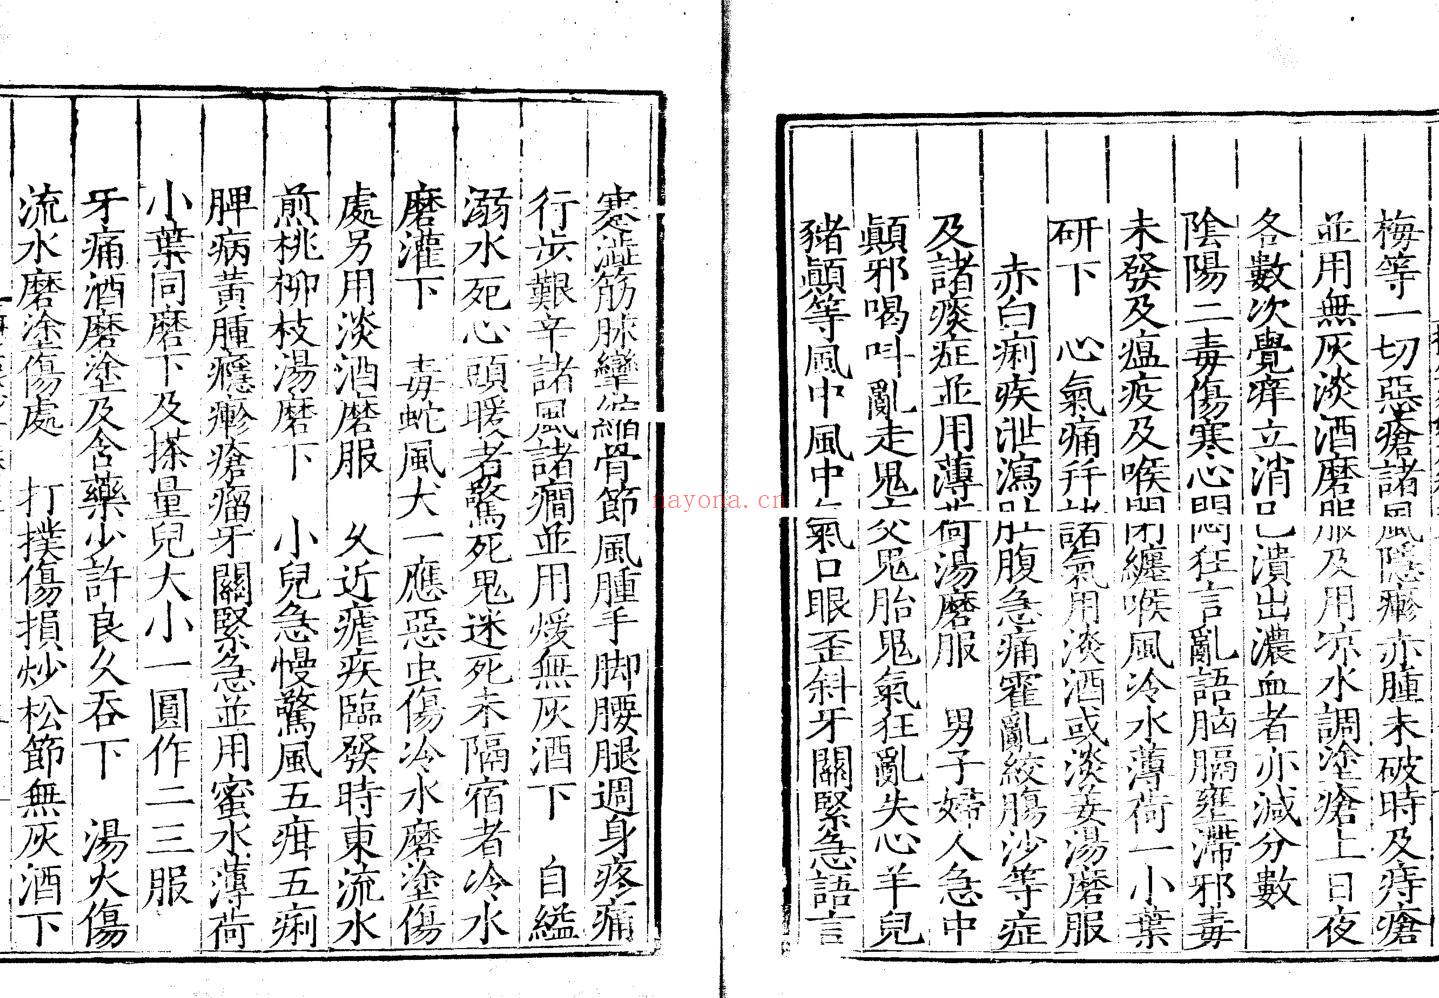 梅等一切惡瘡諸風隱癤赤腫未破時及痔瘡
並用無灰淡酒磨服及用凉水調塗瘡上日夜
各數次覺痒立消已潰出濃血者亦减分數
陰陽二毒傷寒心悶狂言亂語胸膈壅滯邪毒
未發及瘟疫及喉閉纏喉風冷水薄荷一小葉
研下　心氣痛幷諸氣用淡酒或淡姜湯磨服
赤白痢疾泄瀉肚腹急痛霍亂絞腸沙等症
及諸痰症並用薄荷湯磨服　男子婦人急中
顛邪喝叫亂走鬼交鬼胎鬼氣狂亂失心羊兒
豬顛等風中風中氣口眼歪斜牙關緊急語言
蹇澁筋脉攣縮骨節風腫手脚腰腿週身疼痛
行步艱辛諸風諸癎並用煖無灰酒下　自縊
溺水死心頭暖者驚死鬼迷死未隔宿者冷水
磨灌下　毒蛇風犬一應惡虫傷冷水磨塗傷
處另用淡酒磨服　久近瘧疾臨發時東流水
煎桃柳枝湯磨下　小兒急慢驚風五疳五痢
脾病黃腫癮瘮瘡瘤牙關緊急並用蜜水薄荷
小葉同磨下及搽量兒大小一圓作二三服
牙痛酒磨塗及含藥少許良久吞下　湯火傷
流水磨塗傷處　打撲傷損炒松節無灰酒下
nayona.cn